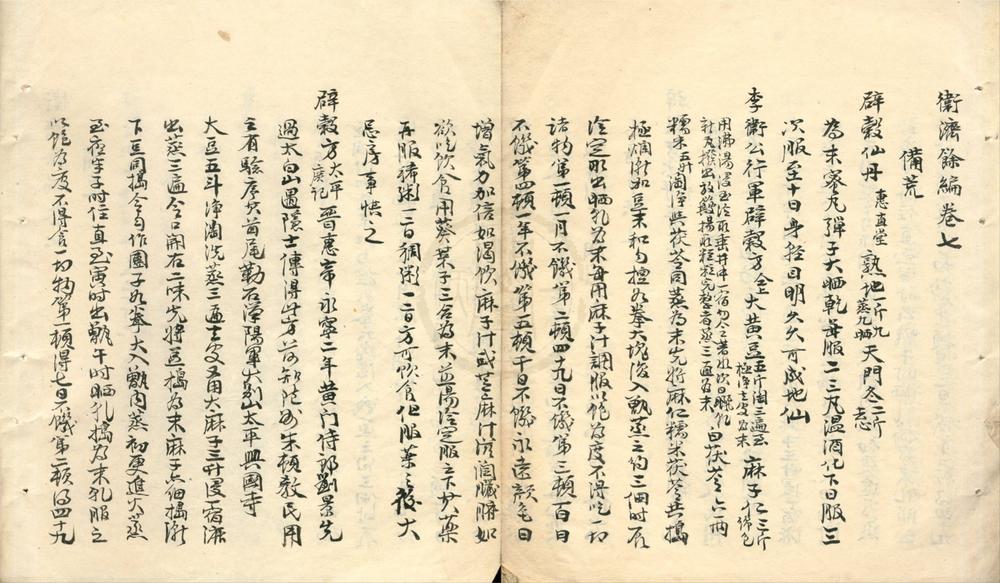 衛濟餘編卷七
備荒
辟穀仙丹 惠直堂 熟地一斤九蒸九晒 天門冬二斤去心
為末蜜丸彈子大晒乾每服二三丸溫酒化下日服三
次服至十日身輕目明久久可成地仙
李衛公行軍辟穀方全 大黃豆五斤淘三遍至極淨去皮為末 麻子仁三斤綿包
用沸湯浸至冷取垂井中一宿勿令著水次日曬乾
社瓦挼出放簸揚取粒粒完整者蒸三遍為末 白茯苓六兩
糯米五升淘淨與茯苓同蒸為末先將麻仁糯米茯苓共搗
極爛漸加豆末和勻捏如拳大塊復入甑蒸之約三個時辰
冷定取出晒乳為末每用麻子汁調服以飽為度不得吃一切
諸物第一頓一月不饑第二頓四十九日不饑第三頓百日
不饑第四頓一年不饑第五頓千日不饑永遠顏色日
增氣力加倍如渴飲麻子汁或芝麻汁滋潤臟腑如
欲吃飲食用葵菜子三合為末煎湯冷定服之下其藥
再服稀粥一二日稠粥一二日方可飲食但服藥之後大
忌房事慎之
辟穀方太平廣記 晉惠帝永寧二年黃門侍郎劉景先
過太白山遇隱士傳得此方前知隨州朱頓教民用
之有驗序穴首尾勒石漢陽軍大別山太平興國寺
大豆五斗淨淘洗蒸三遍去皮又用大麻子三升浸一宿漉
出蒸三遍令口開右二味先將豆搗為末麻子亦細搗漸
下豆同搗令勻作團子如拳大入甑內蒸初更進火蒸
至夜半子時住直至寅時出甑午時晒乳搗為末乳服之
以飽為度不得食一切物第一頓得七日不饑第二頓得四十九